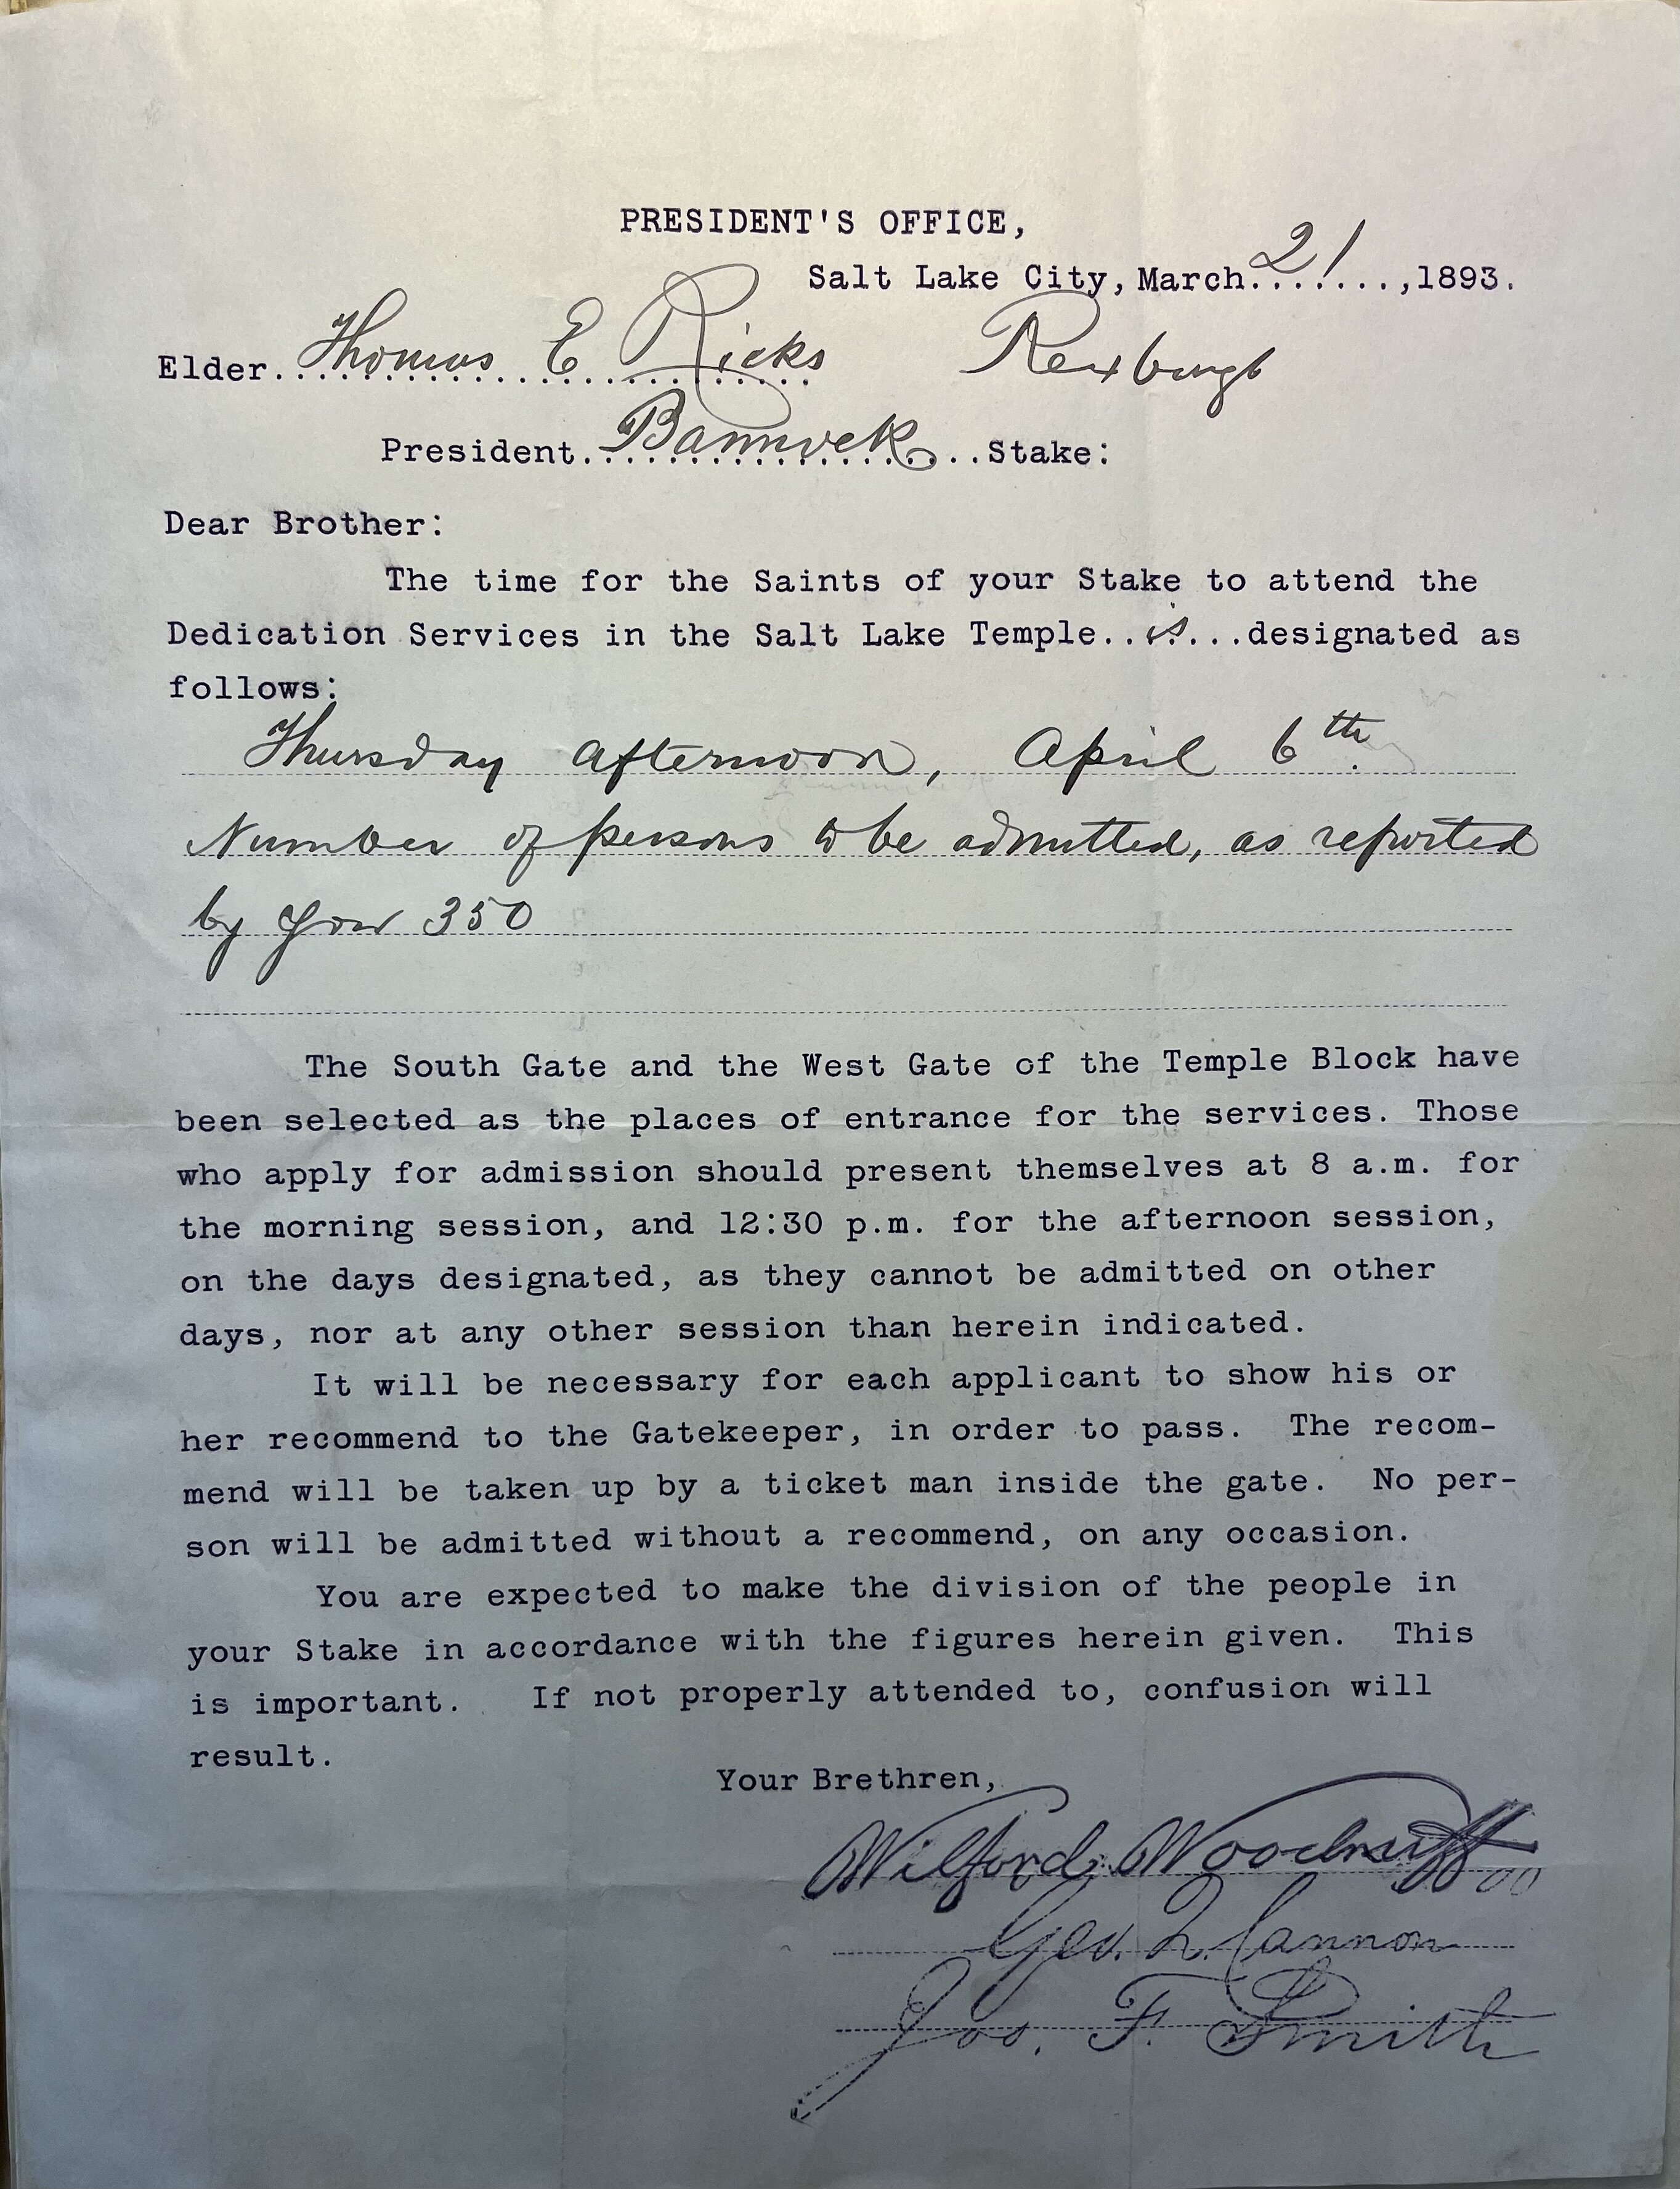 PRESIDENT'S OFFICE,
Salt Lake City, March 21, 1893.
Elder Thomas E Ricks Rexburgh
President Bannock Stake:
Dear Brother:
The time for the Saints of your Stake to attend the
Dedication Services in the Salt Lake Temple is designated as
follows:
Thursday afternoon, April 6th.
Number of persons to be admitted, as reported
by you 350
The South Gate and the West Gate of the Temple Block have
been selected as the places of entrance for the services. Those
who apply for admission should present themselves at 8 a.m. for
the morning session, and 12:30 p.m. for the afternoon session,
on the days designated, as they cannot be admitted on other
days, nor at any other session than herein indicated.
It will be necessary for each applicant to show his or
her recommend to the Gatekeeper, in order to pass. The recom-
mend will be taken up by a ticket man inside the gate. No per-
son will be admitted without a recommend, on any occasion.
You are expected to make the division of the people in
your Stake in accordance with the figures herein given. This
is important. If not properly attended to, confusion will
result.
Your Brethren,
Wilford Woodruff
Geo. Q. Cannon
Jos. F. Smith